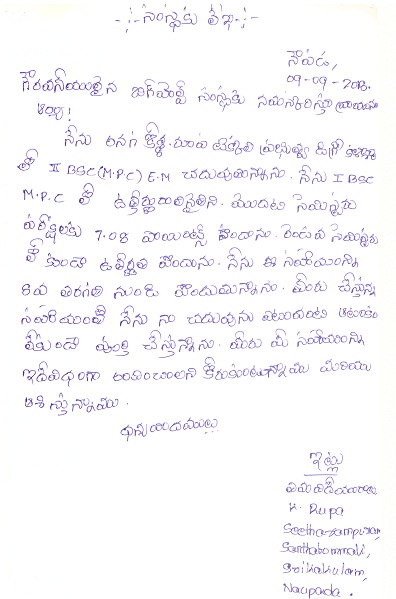 -:- సంస్థకు లేఖ -:-
నౌపడ,
09-09-2018.
గౌరవనీయులైన సంస్థకు నమస్కరిస్తూ వ్రాయునది
ఆర్యా!
నేను అనగా టెక్కలి ప్రభుత్వ డిగ్రీ కళాశాల
లో II BSC(M.P.C) E.M చదువుతున్నాను. నేను I BSC
M.P.C లో ఉత్తీర్ణురాలినైతిని. మొదటి సెమిస్టరు
పరీక్షలకు 7.08 పాయింట్స్ పొందాను. రెండవ సెమిస్టరు
లో కూడా ఉత్తీర్ణత పొందాను. నేను ఈ సహాయాన్ని
8వ తరగతి నుండి పొందుతున్నాను. మీరు చేస్తున్న
సహాయంతో నేను నా చదువును ఎటువంటి ఆటంకం
లేకుండా పూర్తి చేస్తున్నాను. మీరు మీ సహాయాన్ని
ఇదేవిధంగా అందించాలని కోరుకుంటున్నాము మరియు
ఆశిస్తున్నాము.
ధన్యవాదములు
ఇట్లు
తమ విధేయురాలు
K. Rupa
Seetharampuram,
Santhabommali,
Srikakulam,
Naupada.